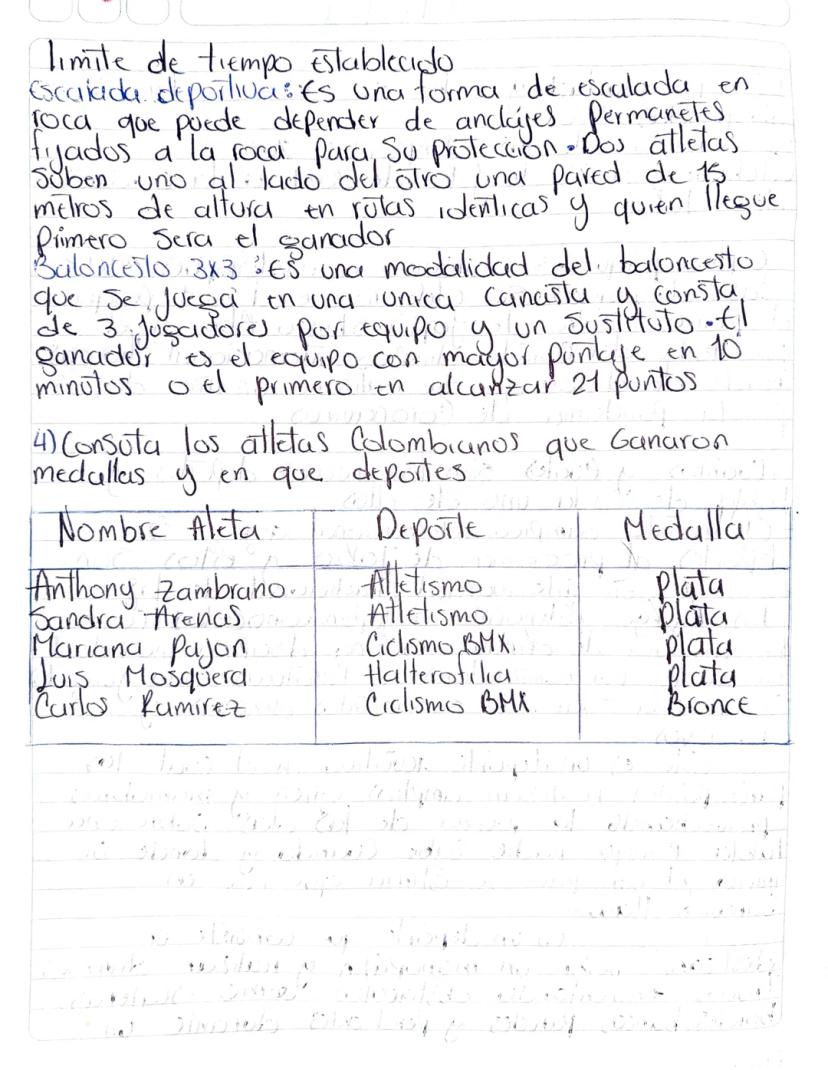 limite de tiempo Establecido
Escalada deportiva: Es una forma de esculada en
roca que puede depender de anclajes Permanetes
fijados a la roca Para Su protección. Dos atletas
Suben uno al lado del otro una pared de 15
metros de altura en rutas identicas y quien llegue
Primero Sera el ganador
Baloncesto 3x3: Es una modalidad del baloncesto
que Se juega en una unica Cancista y Consta
de 3 jugadores por equipo y un Sustituto. El
ganador es el equipo con mayor puntaje en 10
minutos o el primero en alcanzar 21 puntos
4) Consuta los atletas Colombianos que Ganaron
medallas y en que deportes
Nombre Aleta: Deporte Medalla
Anthony Zambrano Atletismo Plata
Sandra Arenas Atletismo Plata
Mariana Pajon Ciclismo BMX Plata
Luis Mosquera Halterofilia Plata
Carlos Ramirez Ciclismo BMX Bronce